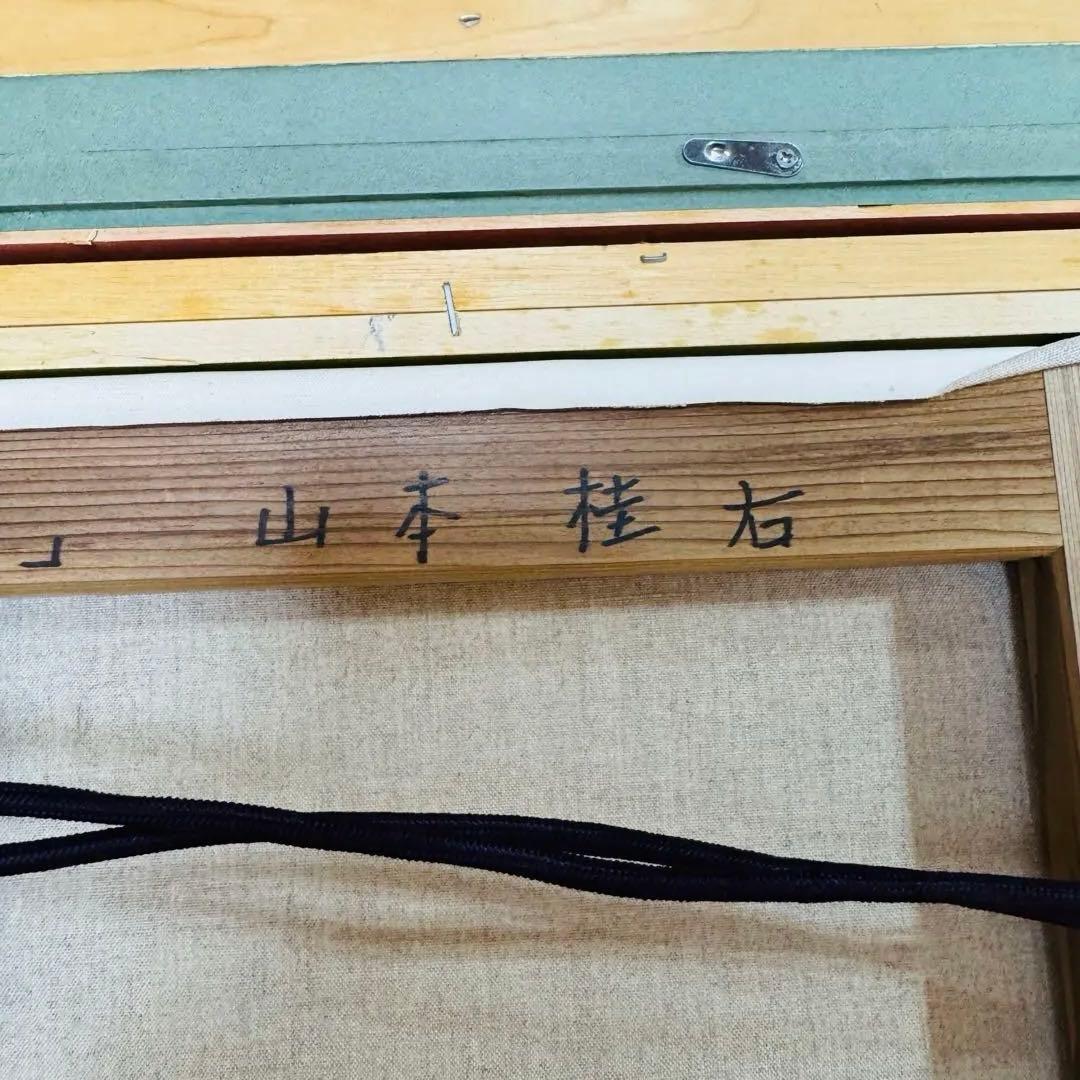 」 山本桂右